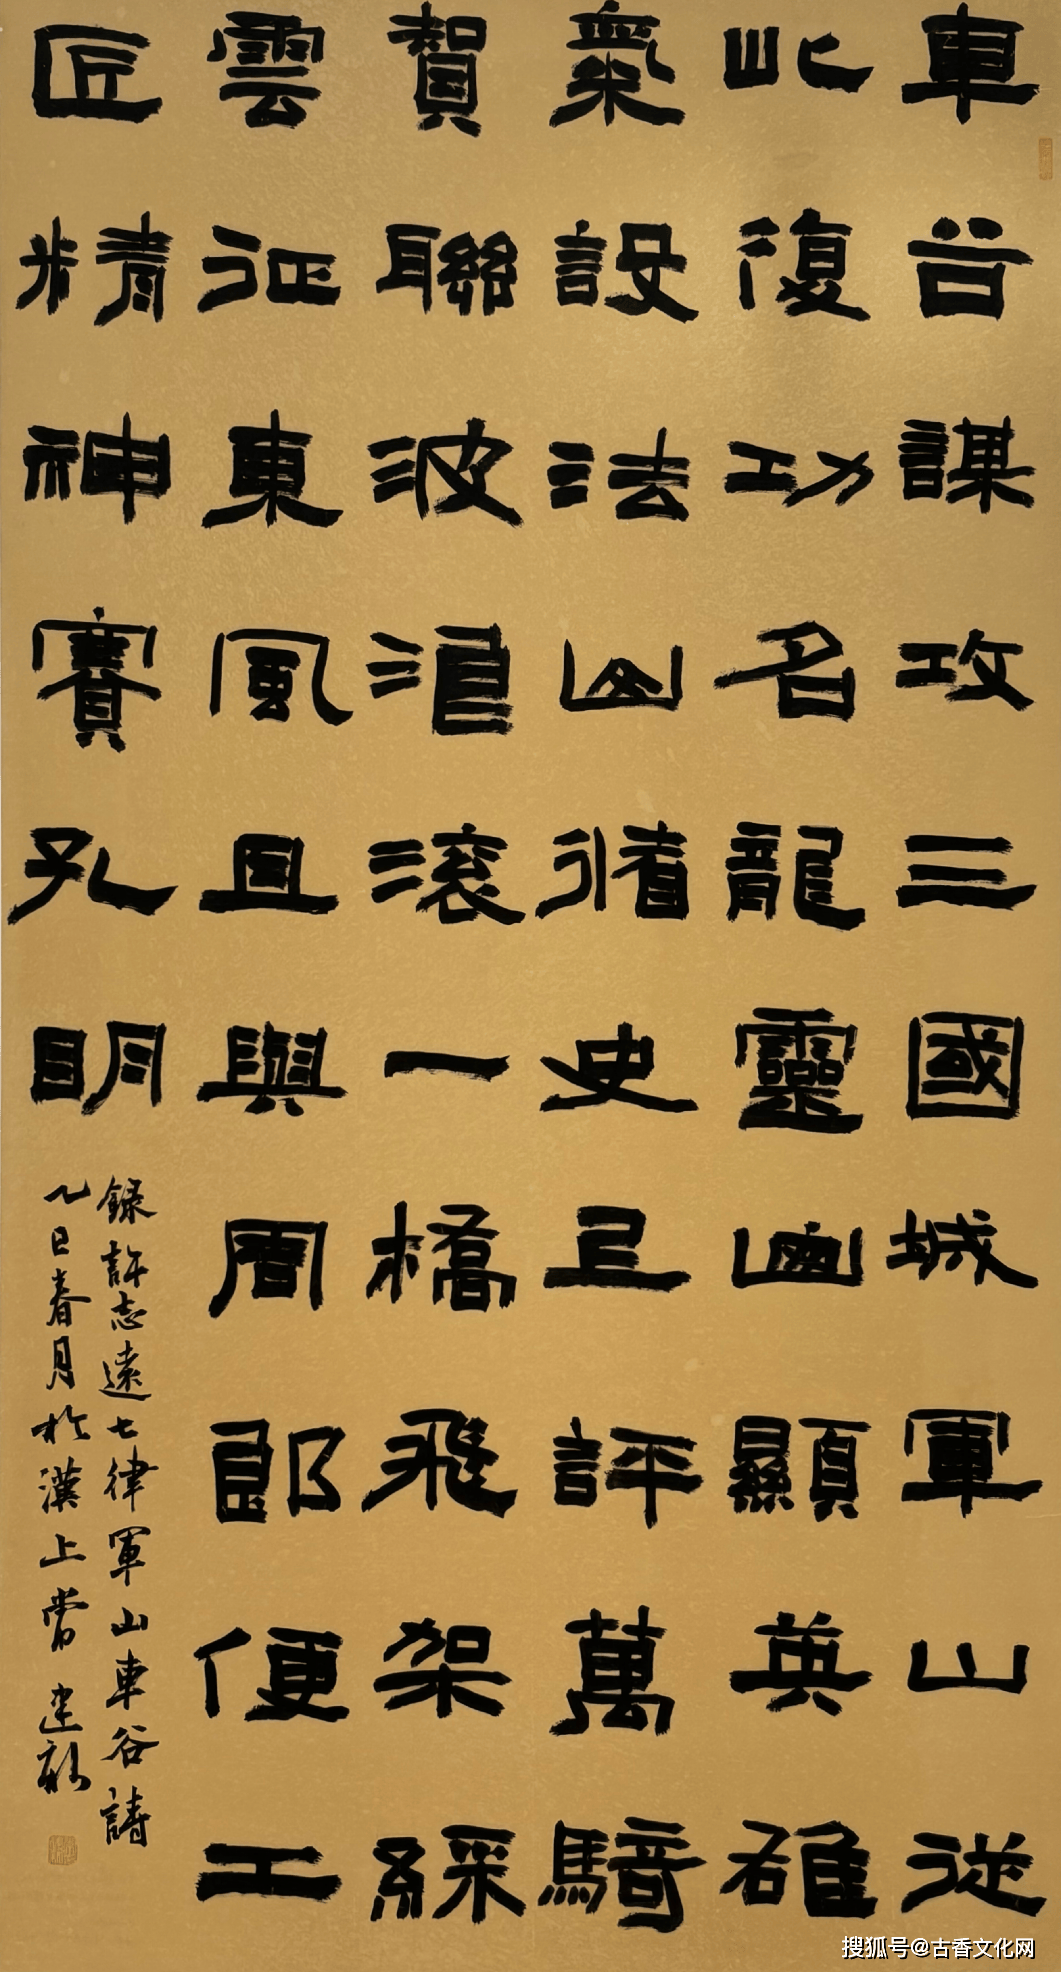 車谷謀攻三國城軍山從
此復功名龍靈幽顯英雄
氣設法循史且評萬騎
賀聯波浪滾一橋飛架綵
雲征東風且與周郎便工
匠精神賽孔明
錄許志遠七律軍山車谷詩
乙巳春月於漢上建
搜狐号@古香文化网